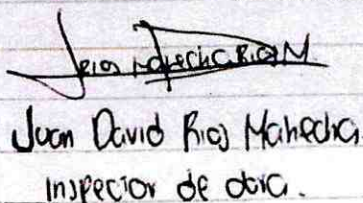 Juan David Rios Mahecha
Inspector de obra.